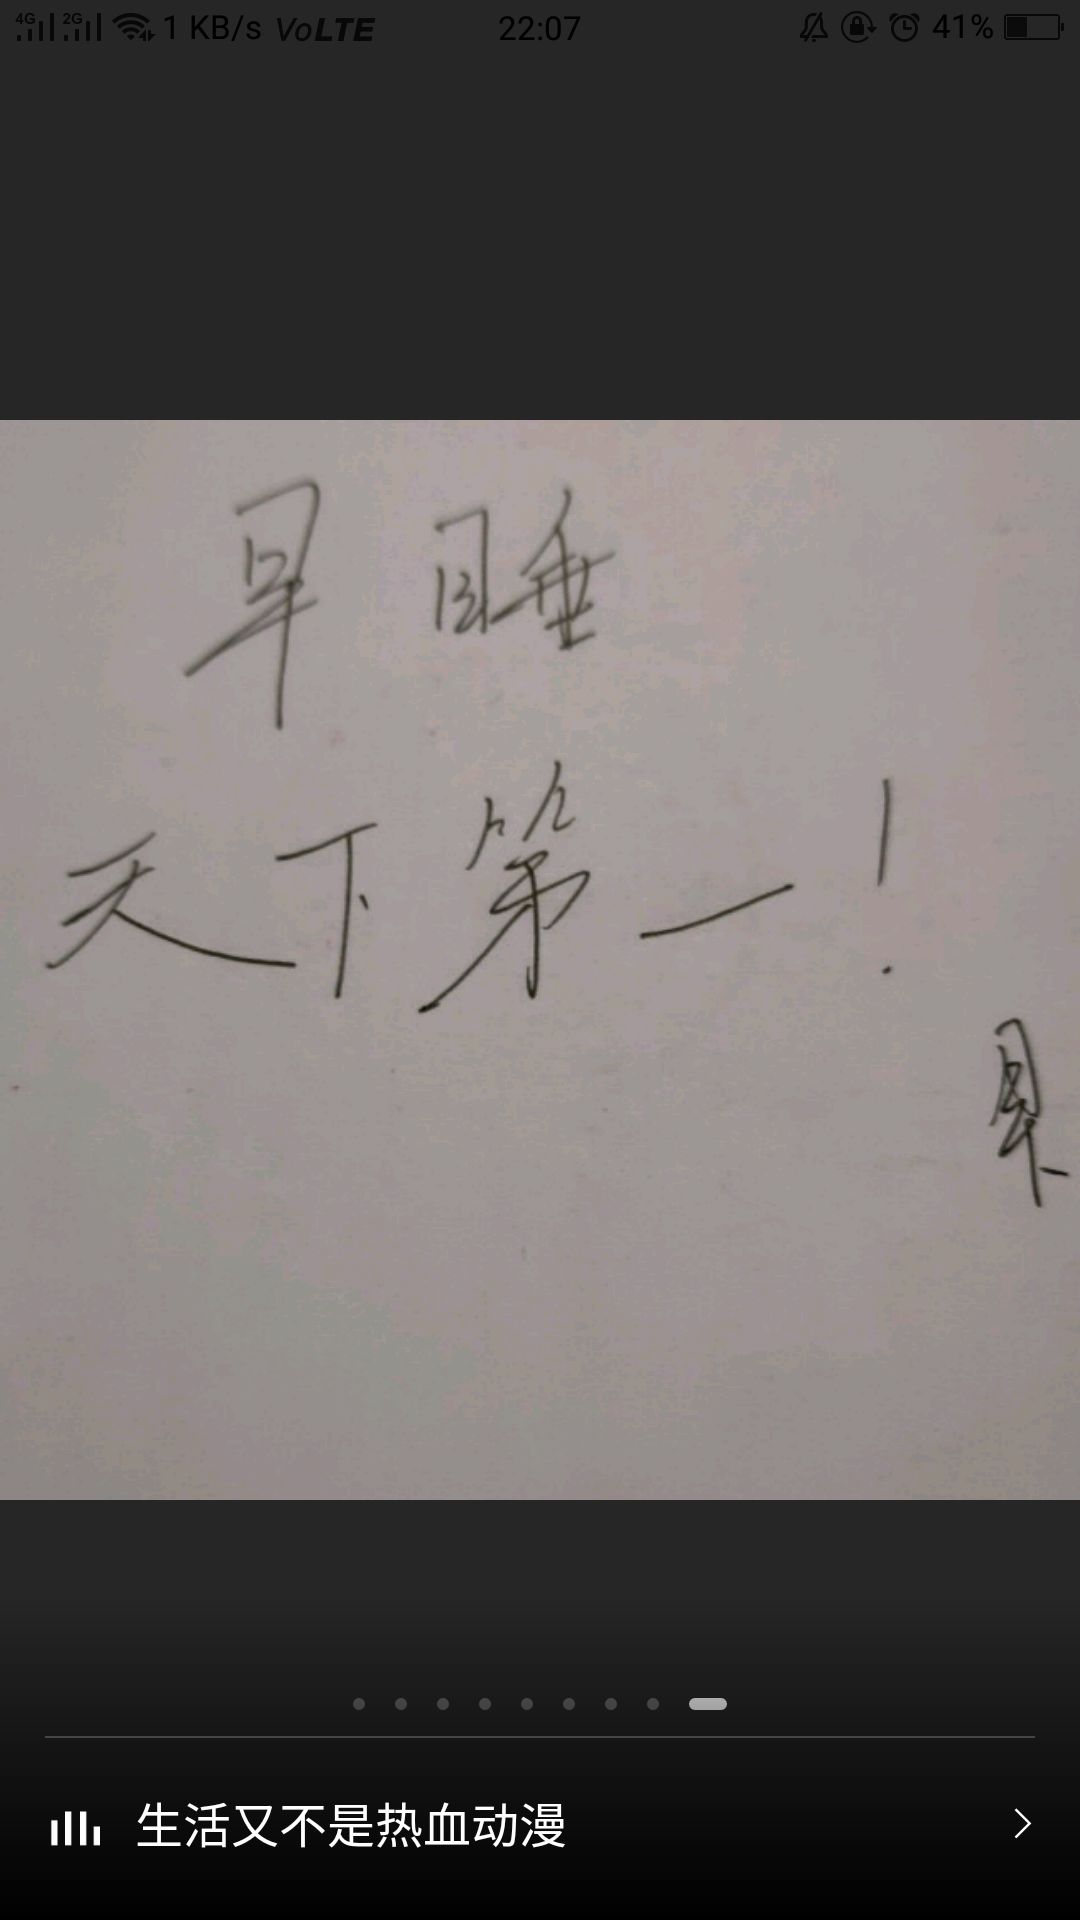 4G 2G 1 KB/s VoLTE 22:07 41%
早睡
天下第一!
生活又不是热血动漫